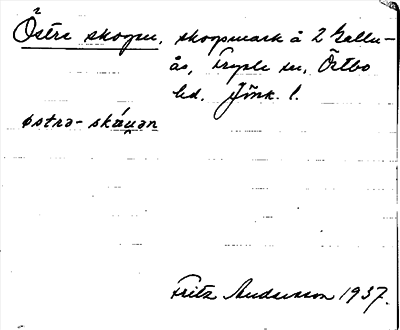 Östra skogen, skogsmark å 2 Gallu-
ås, Tryple sn, Östbo
hd. Jönk. l.
østrə-skáu̯ən
Fritz Andersson 1937.